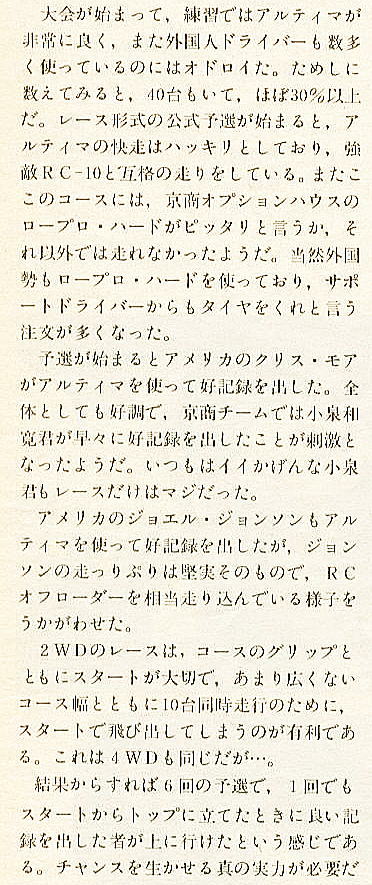 大会が始まって，練習ではアルティマが
非常に良く，また外国人ドライバーも数多
く使っているのにはオドロイた。ためしに
数えてみると，40台もいて，ほぼ30％以上
だ。レース形式の公式予選が始まると，ア
ルティマの快走はハッキリとしており，強
敵ＲＣ-10と互格の走りをしている。またこ
このコースには，京商オプションハウスの
ロープロ・ハードがピッタリと言うか，そ
れ以外では走れなかったようだ。当然外国
勢もロープロ・ハードを使っており，サポ
ートドライバーからもタイヤをくれと言う
注文が多くなった。
　予選が始まるとアメリカのクリス・モア
がアルティマを使って好記録を出した。全
体としても好調で，京商チームでは小泉和
寛君が早々に好記録を出したことが刺激と
なったようだ。いつもはイイかげんな小泉
君もレースだけはマジだった。
　アメリカのジョエル・ジョンソンもアル
ティマを使って好記録を出したが，ジョン
ソンの走っぷりは堅実そのもので，ＲＣ
オフローダーを相当走り込んでいる様子を
うかがわせた。
　２ＷＤのレースは，コースのグリップと
ともにスタートが大切で，あまり広くない
コース幅とともに10台同時走行のために，
スタートで飛び出してしまうのが有利であ
る。これは４ＷＤも同じだが…。
　結果からすれば６回の予選で，１回でも
スタートからトップに立てたときに良い記
録を出した者が上に行けたという感じであ
る。チャンスを生かせる真の実力が必要だ